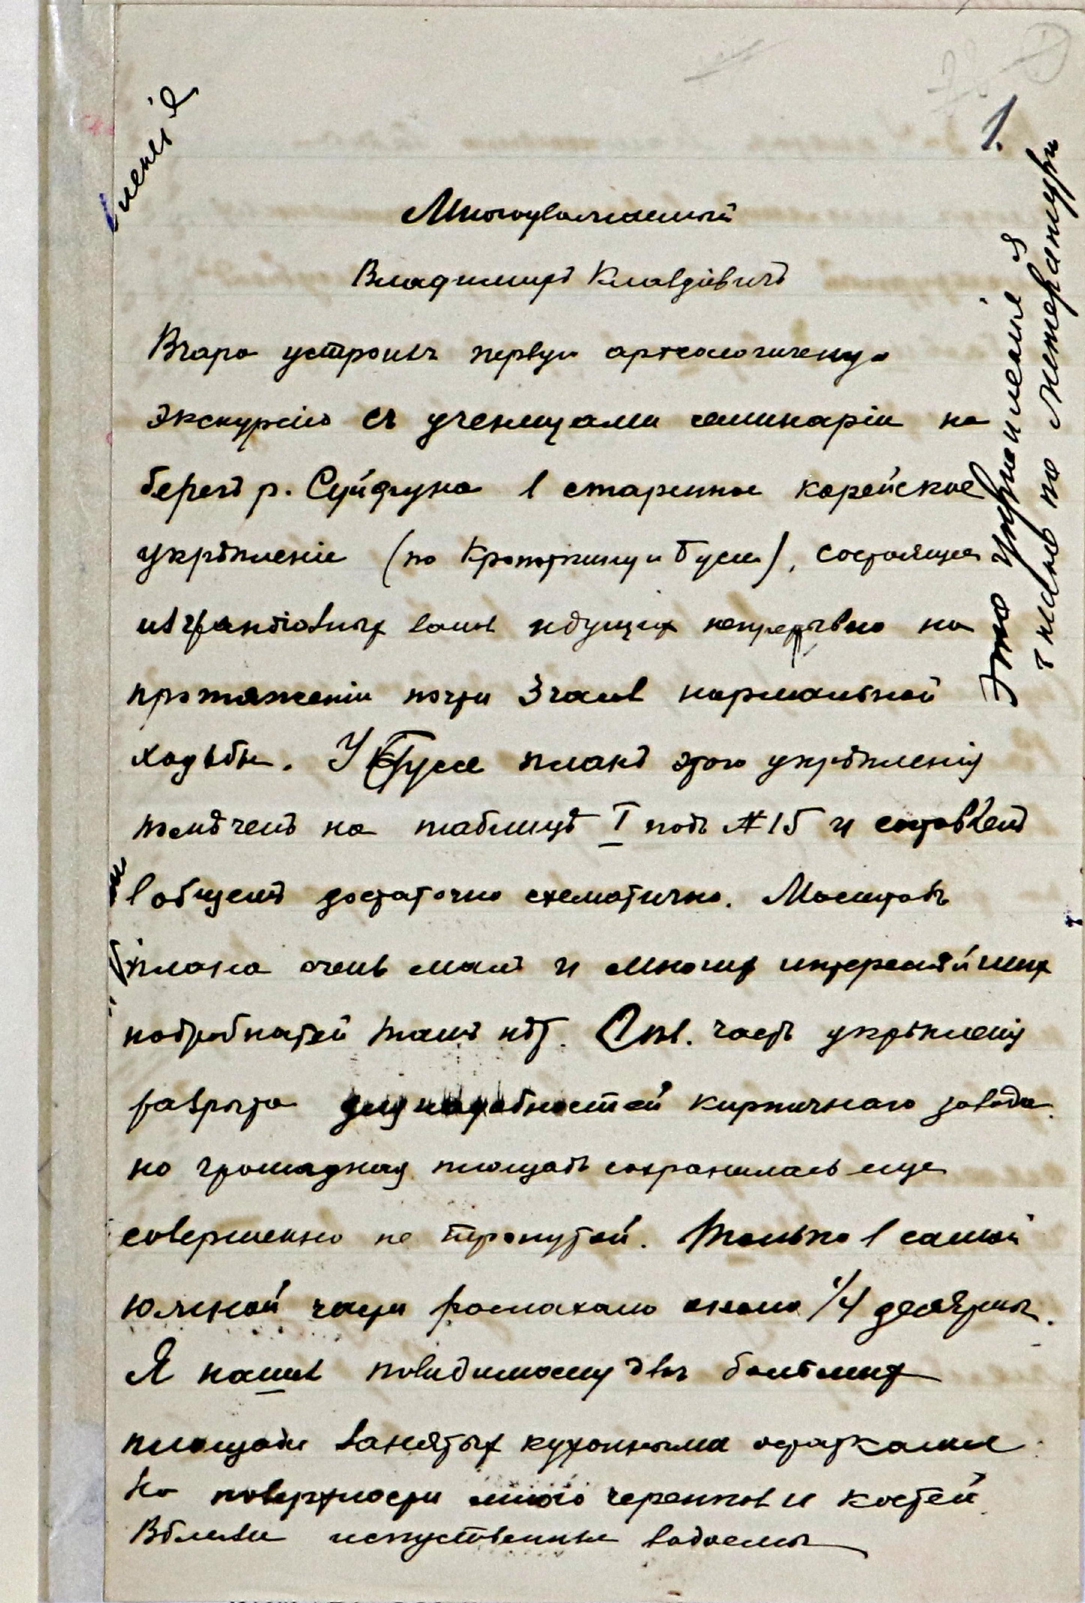 1.
Многоуважаемый
Владимиръ Клавдіевичъ
Вчера устроилъ первую археологичную
экскурсію съ ученицами семинаріи на
берегъ р. Суйфуна в старинное корейское
укрѣпленіе (по Кропоткину и Буссе), состоящее
из грандіозных валов идущих непрерывно на
протяженіи почти 3 часов нормальной
ходьбы. У Буссе планъ этого укрѣпленія
помѣченъ на таблицѣ I подъ № 15 и составленъ
в общемъ достаточно схематично. Масштабъ
плана очень малъ и многих интереснѣйших
подробностей тамъ нѣт. часть укрѣпленія
разрыта для надобностей кирпичнаго завода
но громадная площадь сохранилась еще
совершенно не тронутой. Только в самой
южной части распахано около 1/4 десятины.
Я нашел повидимому двѣ больших
площади занятых кухонными остатками
На поверхности много черепков и костей
Вблизи искуственные водоемы
Это укрѣпленія
только по литературѣ